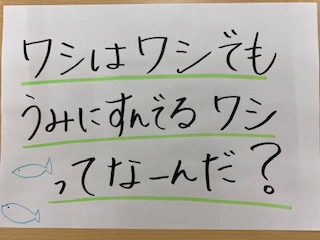 ワシはワシでも
うみにすんでる ワシ
ってなーんだ?